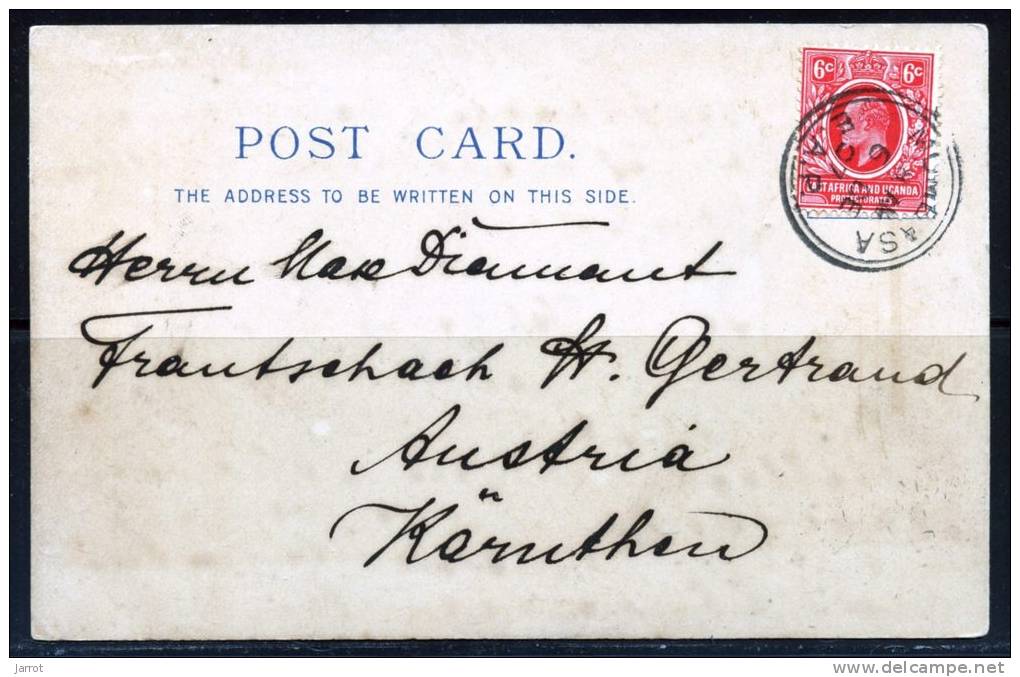 6c 6c
ST AFRICA AND UGANDA
PROTECTORATES
POST CARD.
THE ADDRESS TO BE WRITTEN ON THIS SIDE.
Herrn Max Diamant
Frantschach St. Gertraud
Austria
Kärnthen
Jarrot
www.delcampe.net